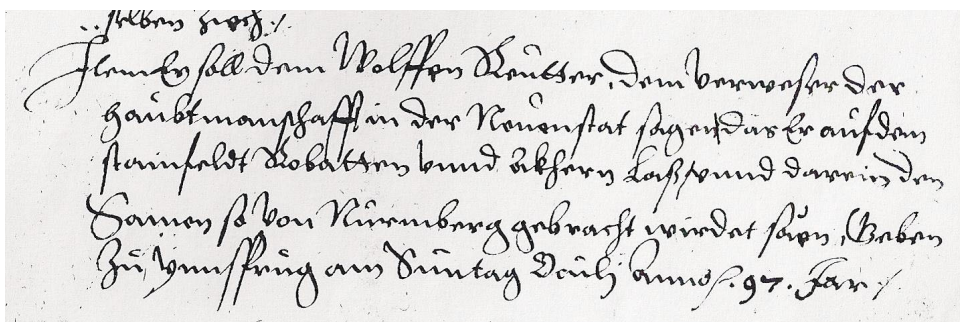 selben hoch ./.
Item Er soll dem Wolffen Reutter, dem verweser der
haubtmanschafft in der Neuenstat sagen, das Er auf dem
stainfeldt Robatten vnnd äkhern Lass, vnnd darein den
Samen so von Nuremberg gebracht wirdet säen, Geben
Zu Ynnsprug am Suntag Anno ./. 97. Jar ./.